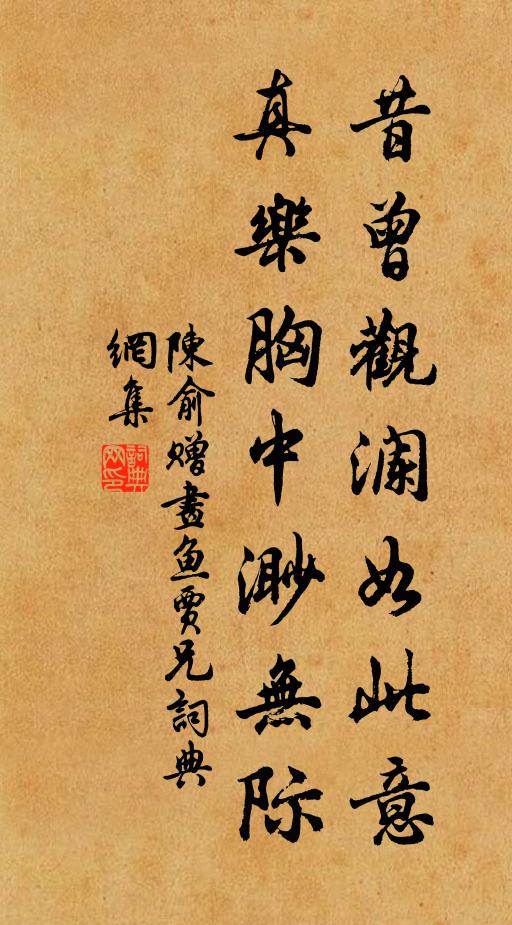 昔曾觀澜如此意
真樂胸中渺無际
陳俞赠畫魚賈兄詞典
網集
詞典
网印